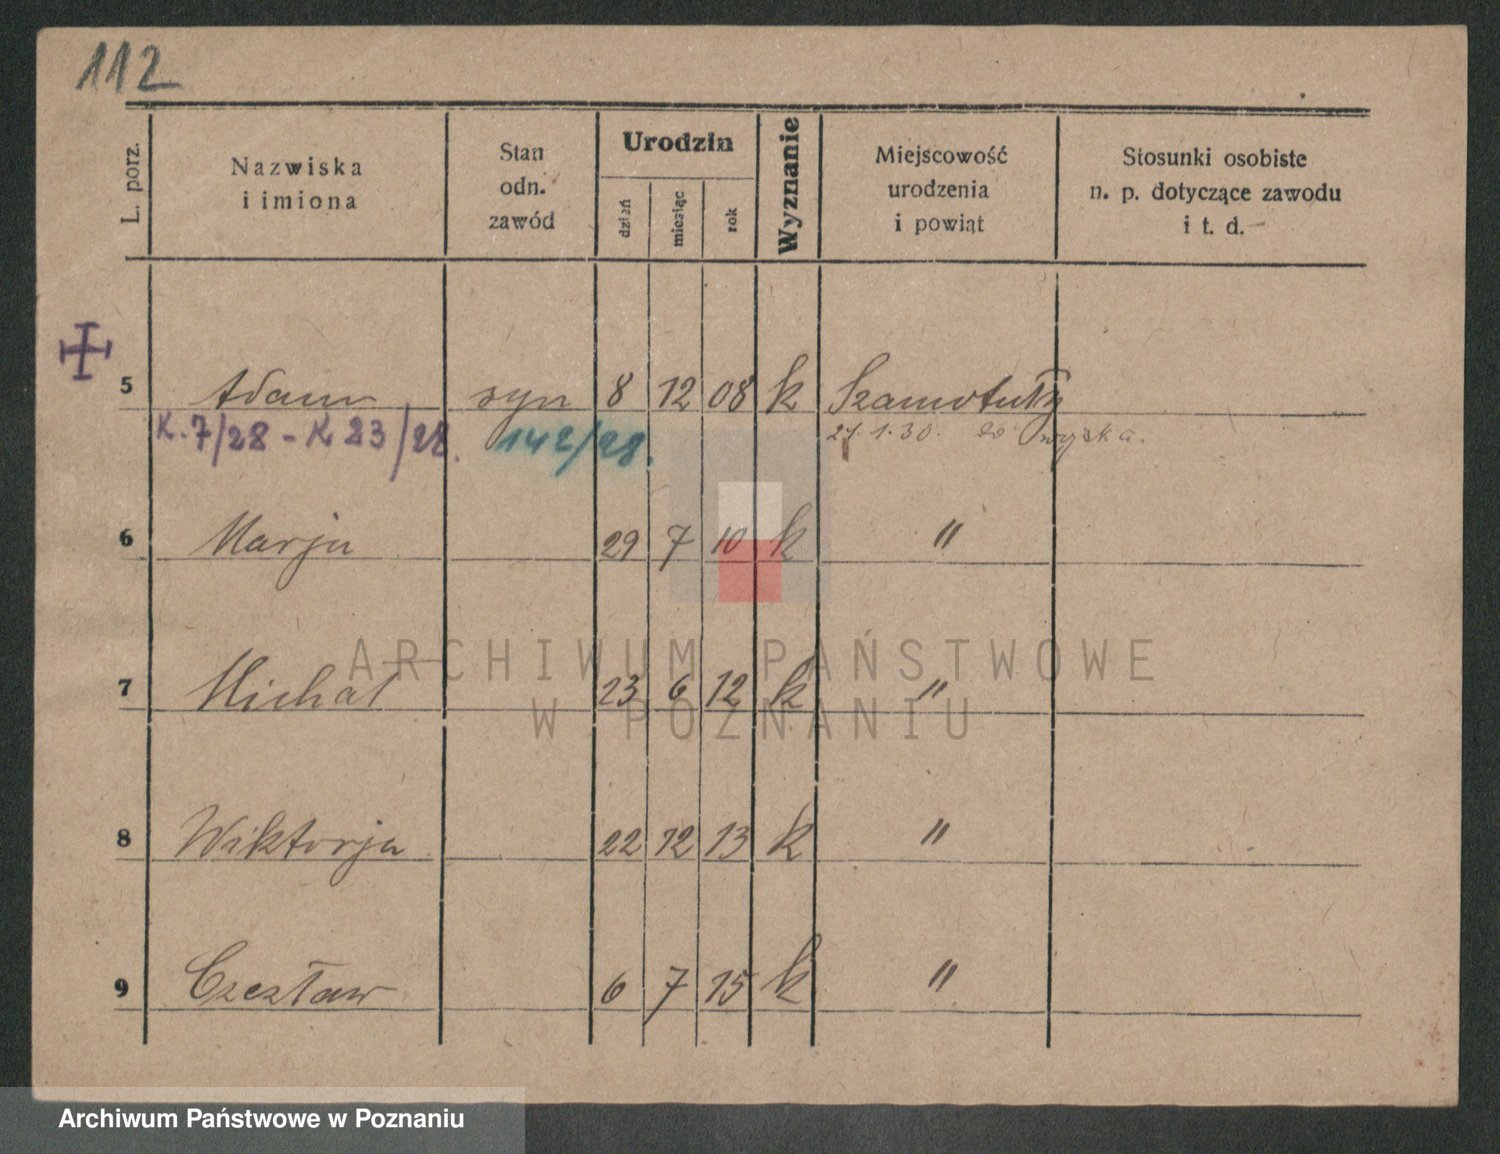 112
L. porz.
Nazwiska
i imiona
Stan
odn.
zawód
Urodzin
dzień
miesiąc
rok
Wyznanie
Miejscowość
urodzenia
i powiąt
Stosunki osobiste
n. p. dotyczące zawodu
i t. d.
5 Adam syn 8 12 08 k Szamotuły
K. 7/28 - K 23/28. 142/28. 1.30. do wojska.
6 Marja 29 7 10 k "
7 Michał 23 6 12 k "
8 Wiktorja 22 12 13 k "
9 Czesław 6 7 15 k "
ARCHIWUM PAŃSTWOWE
W POZNANIU
Archiwum Państwowe w Poznaniu